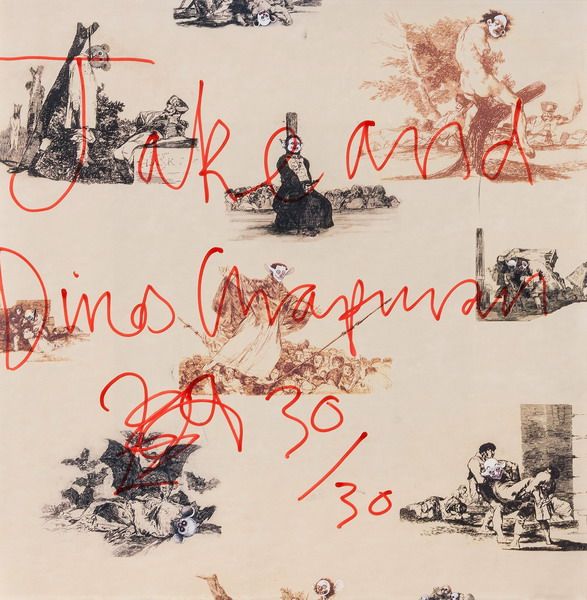 Jake and
Dinos Chapman
30
/30